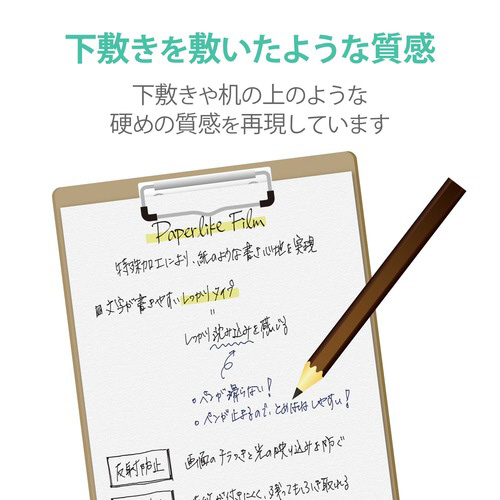 下敷きを敷いたような質感
下敷きや机の上のような
硬めの質感を再現しています
Paperlike Film
特殊加工により、紙のような書き心地を実現
文字が書きやすいしっかりタイプ
=
しっかり沈み込みを感じる
ペンが滑らない!
ペンが止まるので、とめはねはしやすい!
反射防止
画面のチラつきと光の映り込みを防ぐ
が付きにくく、残ってもふき取れる